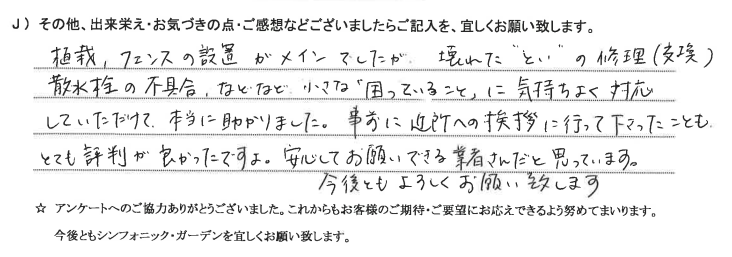 J）その他、出来栄え・お気づきの点・ご感想などございましたらご記入を、宜しくお願い致します。
植栽，フェンスの設置がメインでしたが、壊れた"とい"の修理(交換)
散水栓の不具合，などなど 小さな"困っていること，に気持ちよく対応
していただけて、本当に助かりました。事前に近所への挨拶に行って下さったことも
とても評判が良かったですよ。安心してお願いできる業者さんだと思っています。
今後ともよろしくお願い致します
☆ アンケートへのご協力ありがとうございました。これからもお客様のご期待・ご要望にお応えできるよう努めてまいります。
今後ともシンフォニック・ガーデンを宜しくお願い致します。